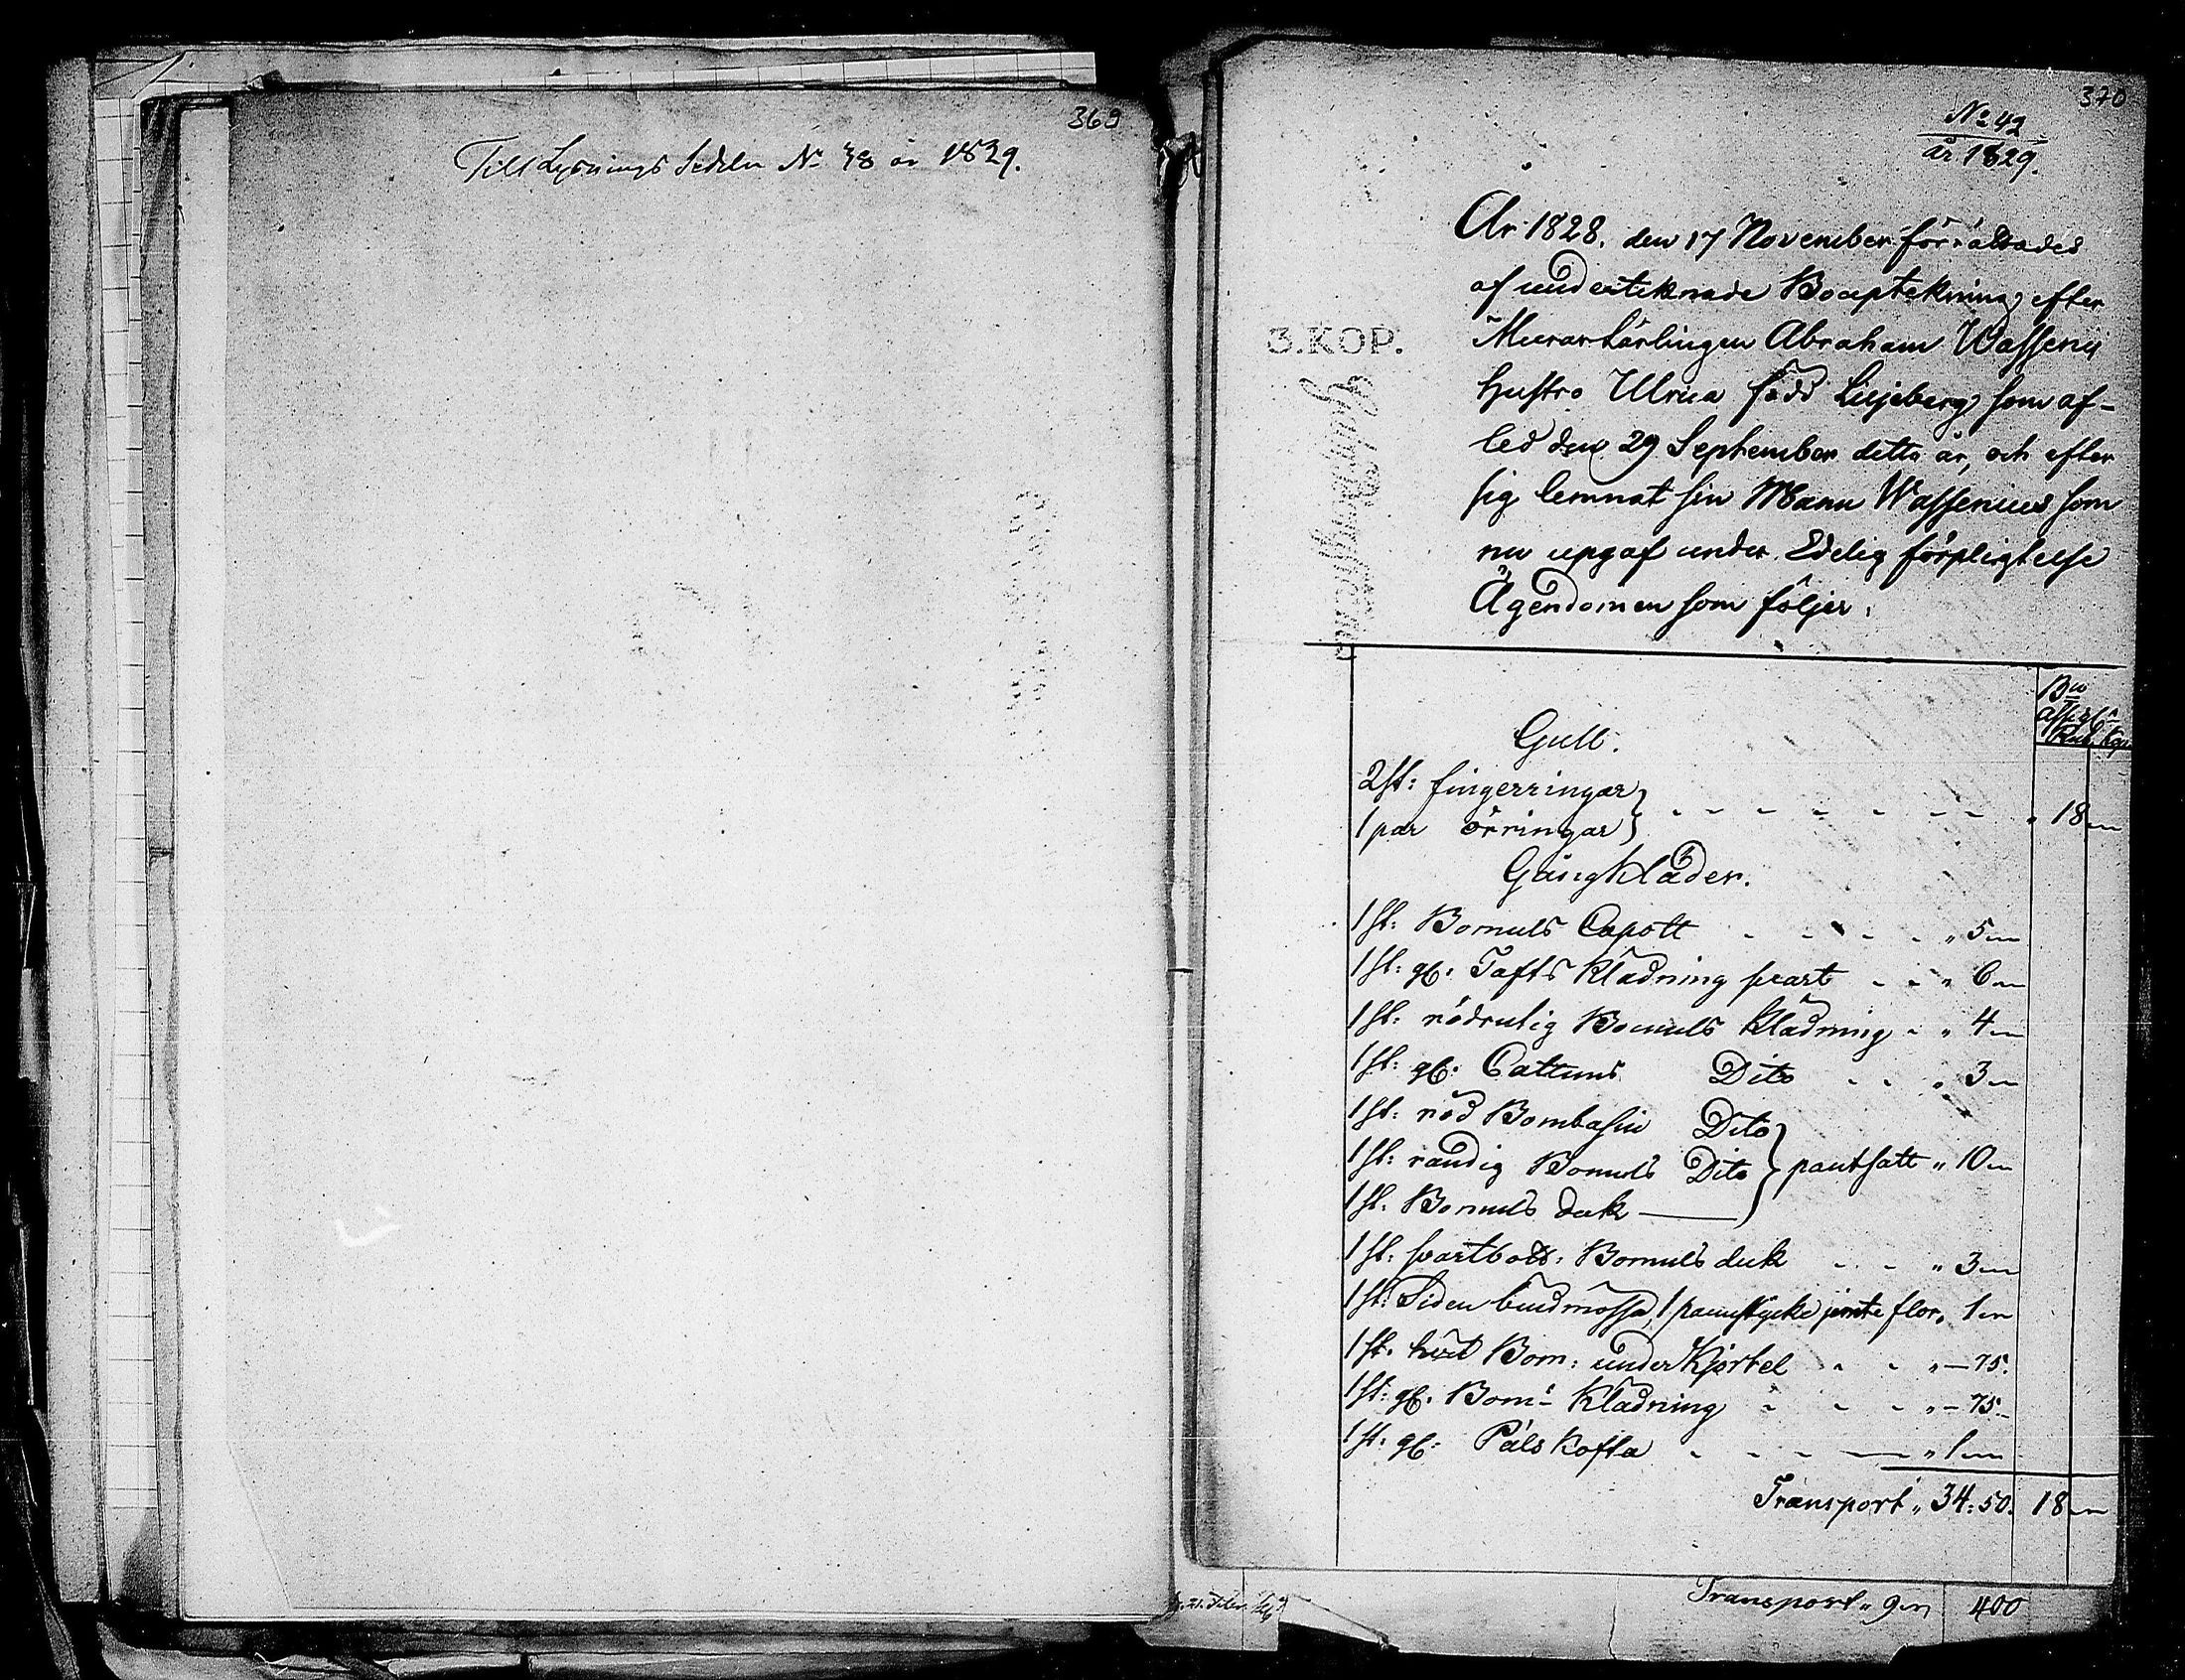 369
Till Lysnings Sedeln No 38 år 1829.
370
No 42
år 1829.
År 1828. den 17 November förrättades
af underteknade Bouptekning efter
3. KOP.
Murarlärlingen Abraham Wasseni
hustro Ulrica född Liljeberg som af-
led den 29 September detta år, och efter
sig lemnat sin Mann Wassenius som
nu upgaf under Edelig förpligtelse
Ägendomen som följer.
Bco
Rub. Kop.
Gull.
2 st: fingerringar
1 par örringar } - - - - - - - „ 18 „
Gångkläder.
1 st: Bomuls Capott - - - - „ 5 „
1 st: gl: Tafts Klädning svart - - „ 6 „
1 st: rödrutig Bomuls Klädning - „ 4 „
1 st: gl: Cattuns Dito - - „ 3 „
1 st: röd Bombasin Dito
1 st: randig Bomuls Dito } pantsatt „ 10 „
1 st. Bomuls duk
1 st: svartbott: Bomuls duk - - „ 3 „
1 st: Siden bindmössa, 1 pannstycke jemte flor „ 1 „
1 st. hvit Bom: underKjortel - - „ - 75.
1 st: gl. Bom:s Klädning - - - „ - 75.
1 st: gl: Päls Kofta - - - „ 1 „
Transport „ 34:50. 18 „
Transport „ 9 „ 400